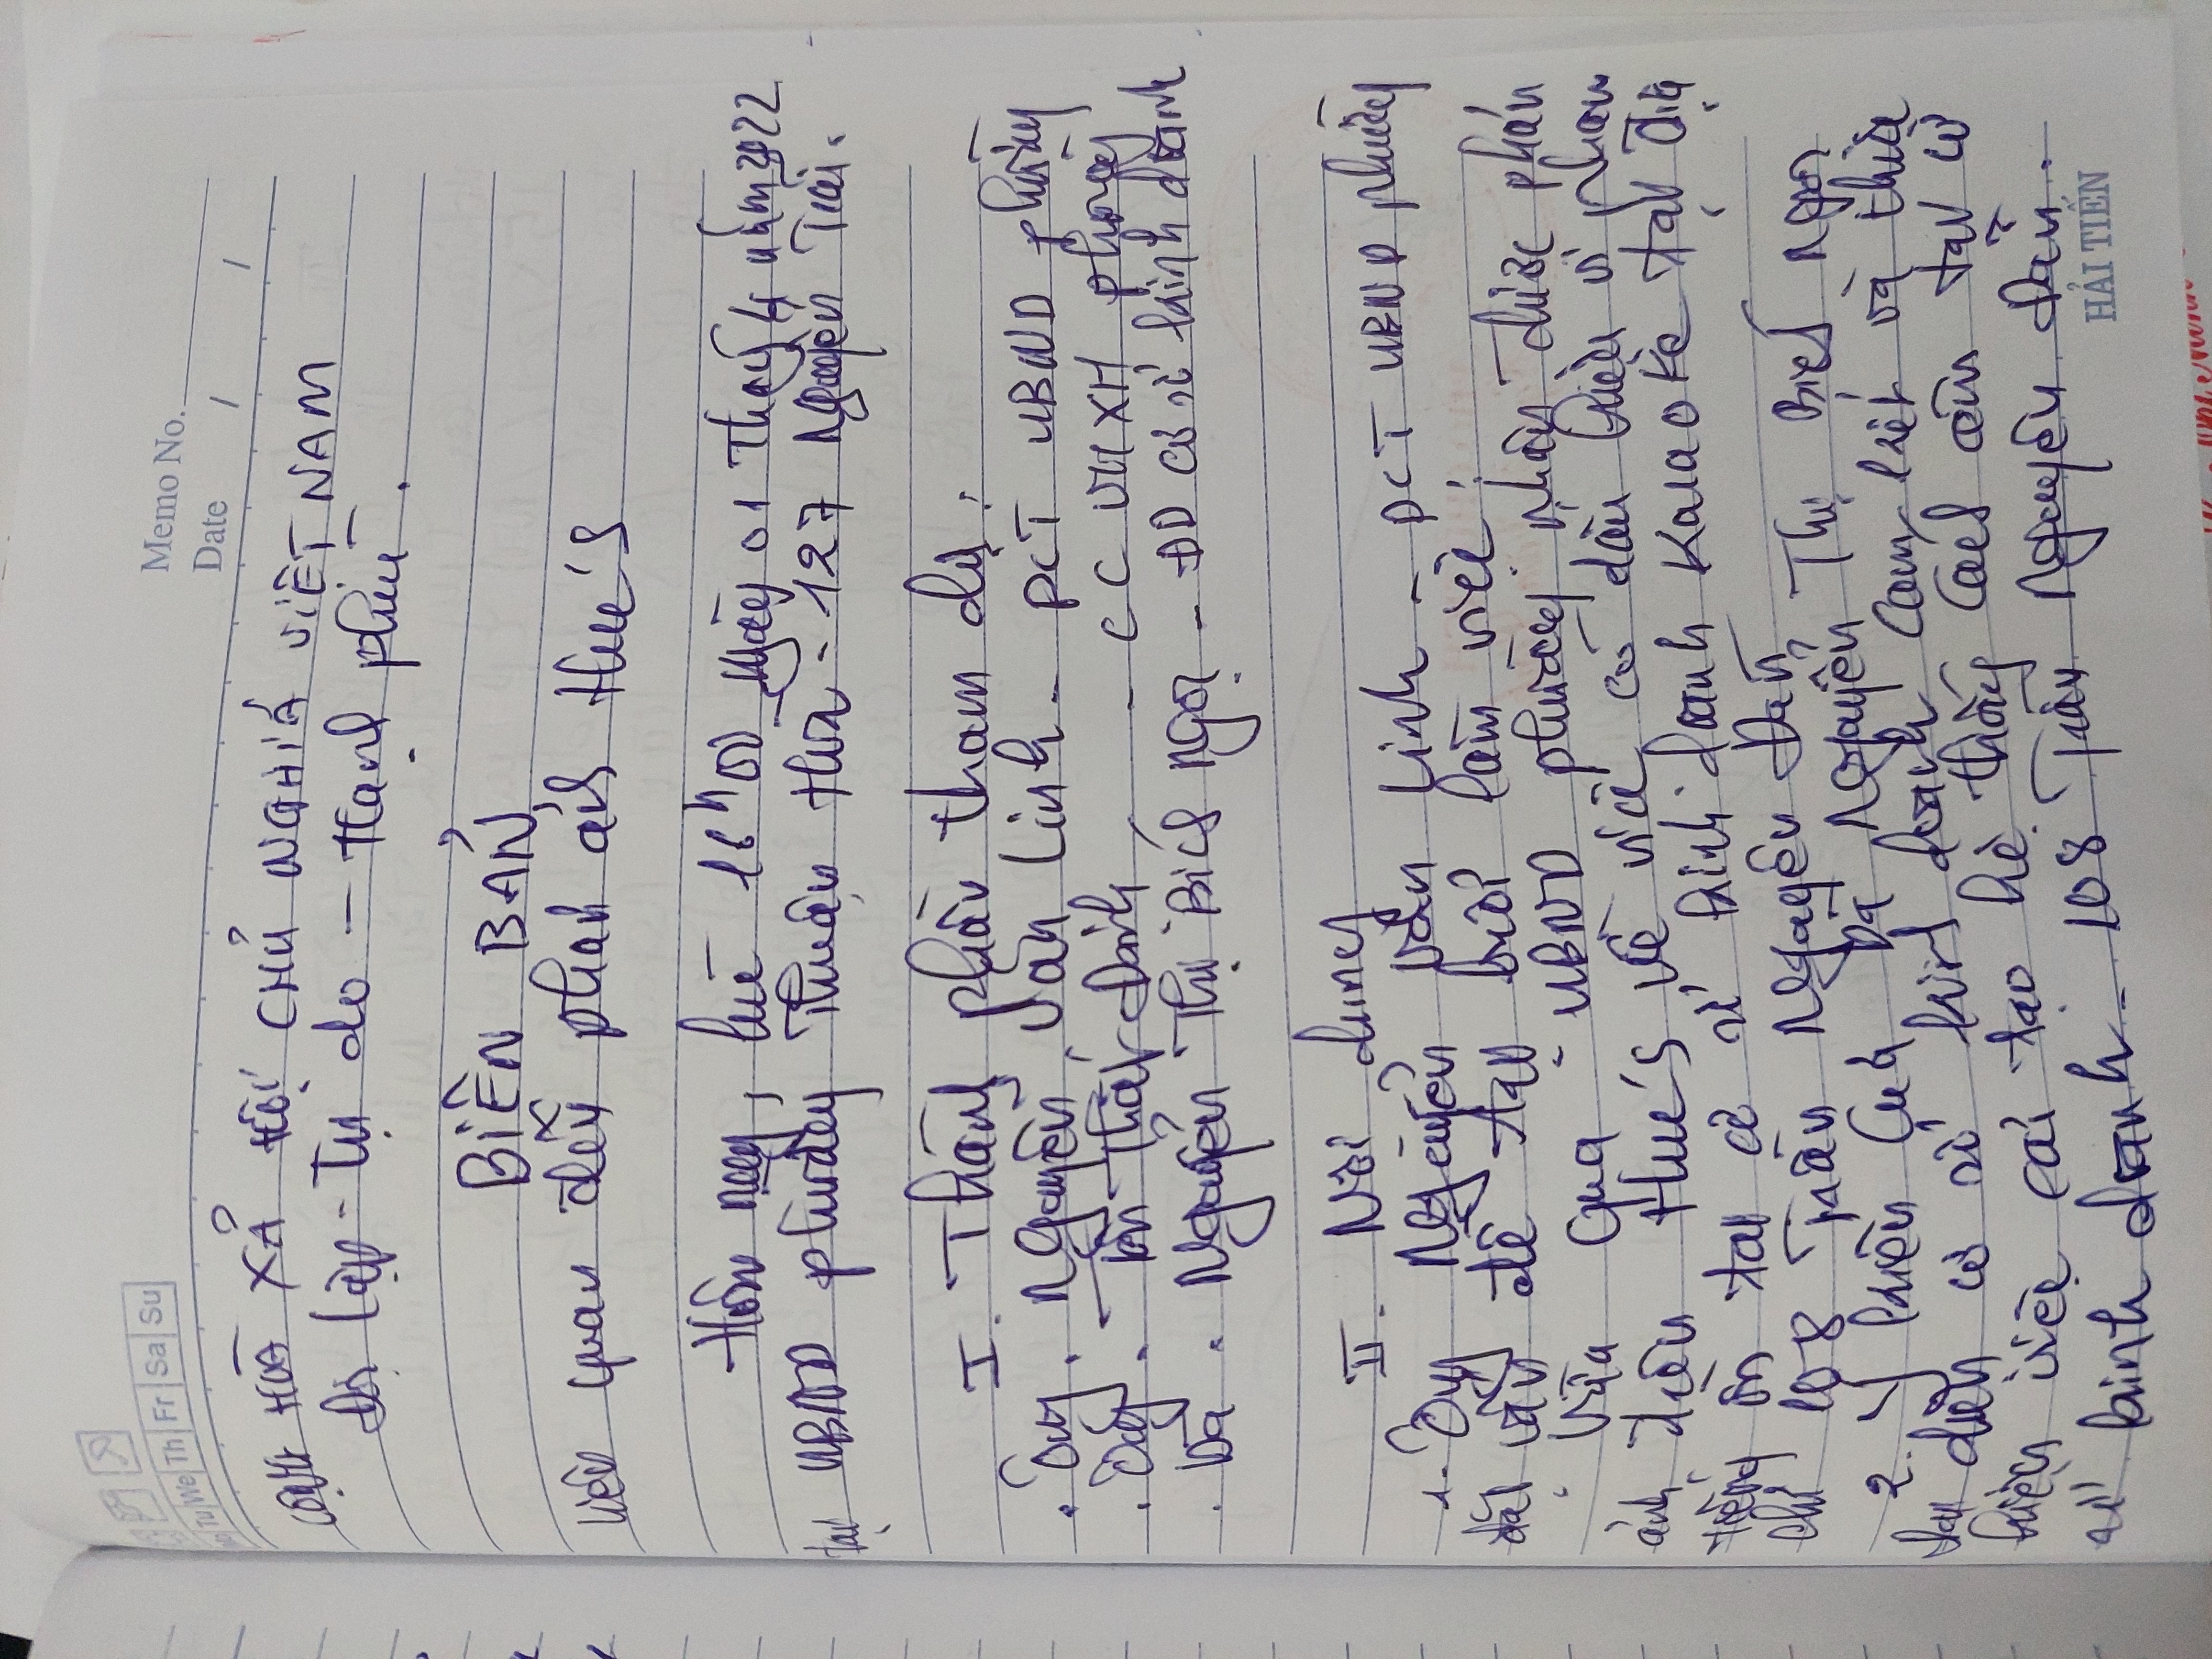 Memo No.
Date / /
Tu We Th Fr Sa Su
CỘNG HÒA XÃ HỘI CHỦ NGHĨA VIỆT NAM
Độc lập - Tự do - Hạnh phúc.
BIÊN BẢN
Liên quan đến phản ánh Hue's
Hôm nay, lúc 16h00 ngày 01 tháng 4 năm 2022
Tại UBND phường Thuận Hòa - 127 Nguyễn Trãi.
I. Thành phần tham dự:
. Ông. Nguyễn Văn Linh - PCT UBND phường
. Ông. Tôn Thất Định - CC VHXH phường
. Bà. Nguyễn Thị Bích Ngọc - ĐD cơ sở kinh doanh
II. Nội dung
1. Ông Nguyễn Văn Linh - PCT UBND phường
đặt vấn đề tại buổi làm việc:
- Vừa qua UBND phường nhận được phản
ánh trên Hue's về việc có dấu hiệu vi phạm
tiếng ồn tại cơ sở kinh doanh Karaoke tại địa
chỉ 108 Trần Nguyên Đán
2. Ý kiến của Bà Nguyễn Thị Bích Ngọc
đại diện cơ sở kinh doanh cam kết và thực
hiện việc cải tạo hệ thống cách âm tại cơ
sở kinh doanh - 108 Trần Nguyên Đán.
HẢI TIẾN